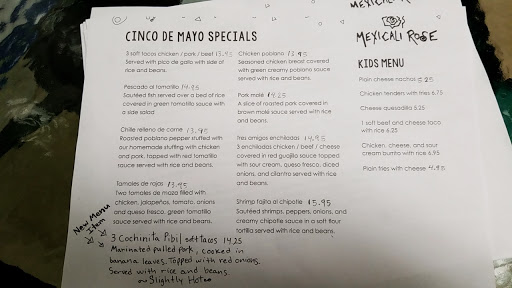 MEXICALI ROSE
CINCO DE MAYO SPECIALS
3 soft tacos chicken / pork / beef 13.95
Served with pico de gallo with side of
rice and beans.
Pescado al tomatillo 14.95
Sautéed fish served over a bed of rice
covered in green tomatillo sauce with
a side salad
Chile relleno de carne 13.95
Roasted poblano pepper stuffed with
our homemade stuffing with chicken
and pork, topped with red tomatillo
sauce served with rice and beans.
Tamales de rojas 13.95
Two tamales de maza filled with
chicken, jalapeños, tomato, onions
and queso fresco, green tomatillo
sauce served with rice and beans.
Chicken poblano 13.95
Seasoned chicken breast covered
with green creamy poblano sauce
served with rice and beans.
Pork molé 14.25
A slice of roasted pork covered in
brown molé sauce served with rice
and beans.
Tres amigos enchiladas 14.95
3 enchiladas chicken / beef / cheese
covered in red guajillo sauce topped
with sour cream, queso fresco, diced
onions, and cilantro served with rice
and beans.
Shrimp fajita al chipotle 15.95
Sautéed shrimps, peppers, onions, and
creamy chipotle sauce in a soft flour
tortilla served with rice and beans.
New Menu
Item
3 Cochinita Pibil soft tacos 14.25
Marinated pulled pork, cooked in
banana leaves. Topped with red onions.
Served with rice and beans
Slightly Hot
MEXICALI ROSE
KIDS MENU
Plain cheese nachos 5.25
Chicken tenders with fries 6.75
Cheese quesadilla 5.25
1 soft beef and cheese taco
with rice 6.25
Chicken, cheese, and sour
cream burrito with rice 6.95
Plain fries with cheese 4.95